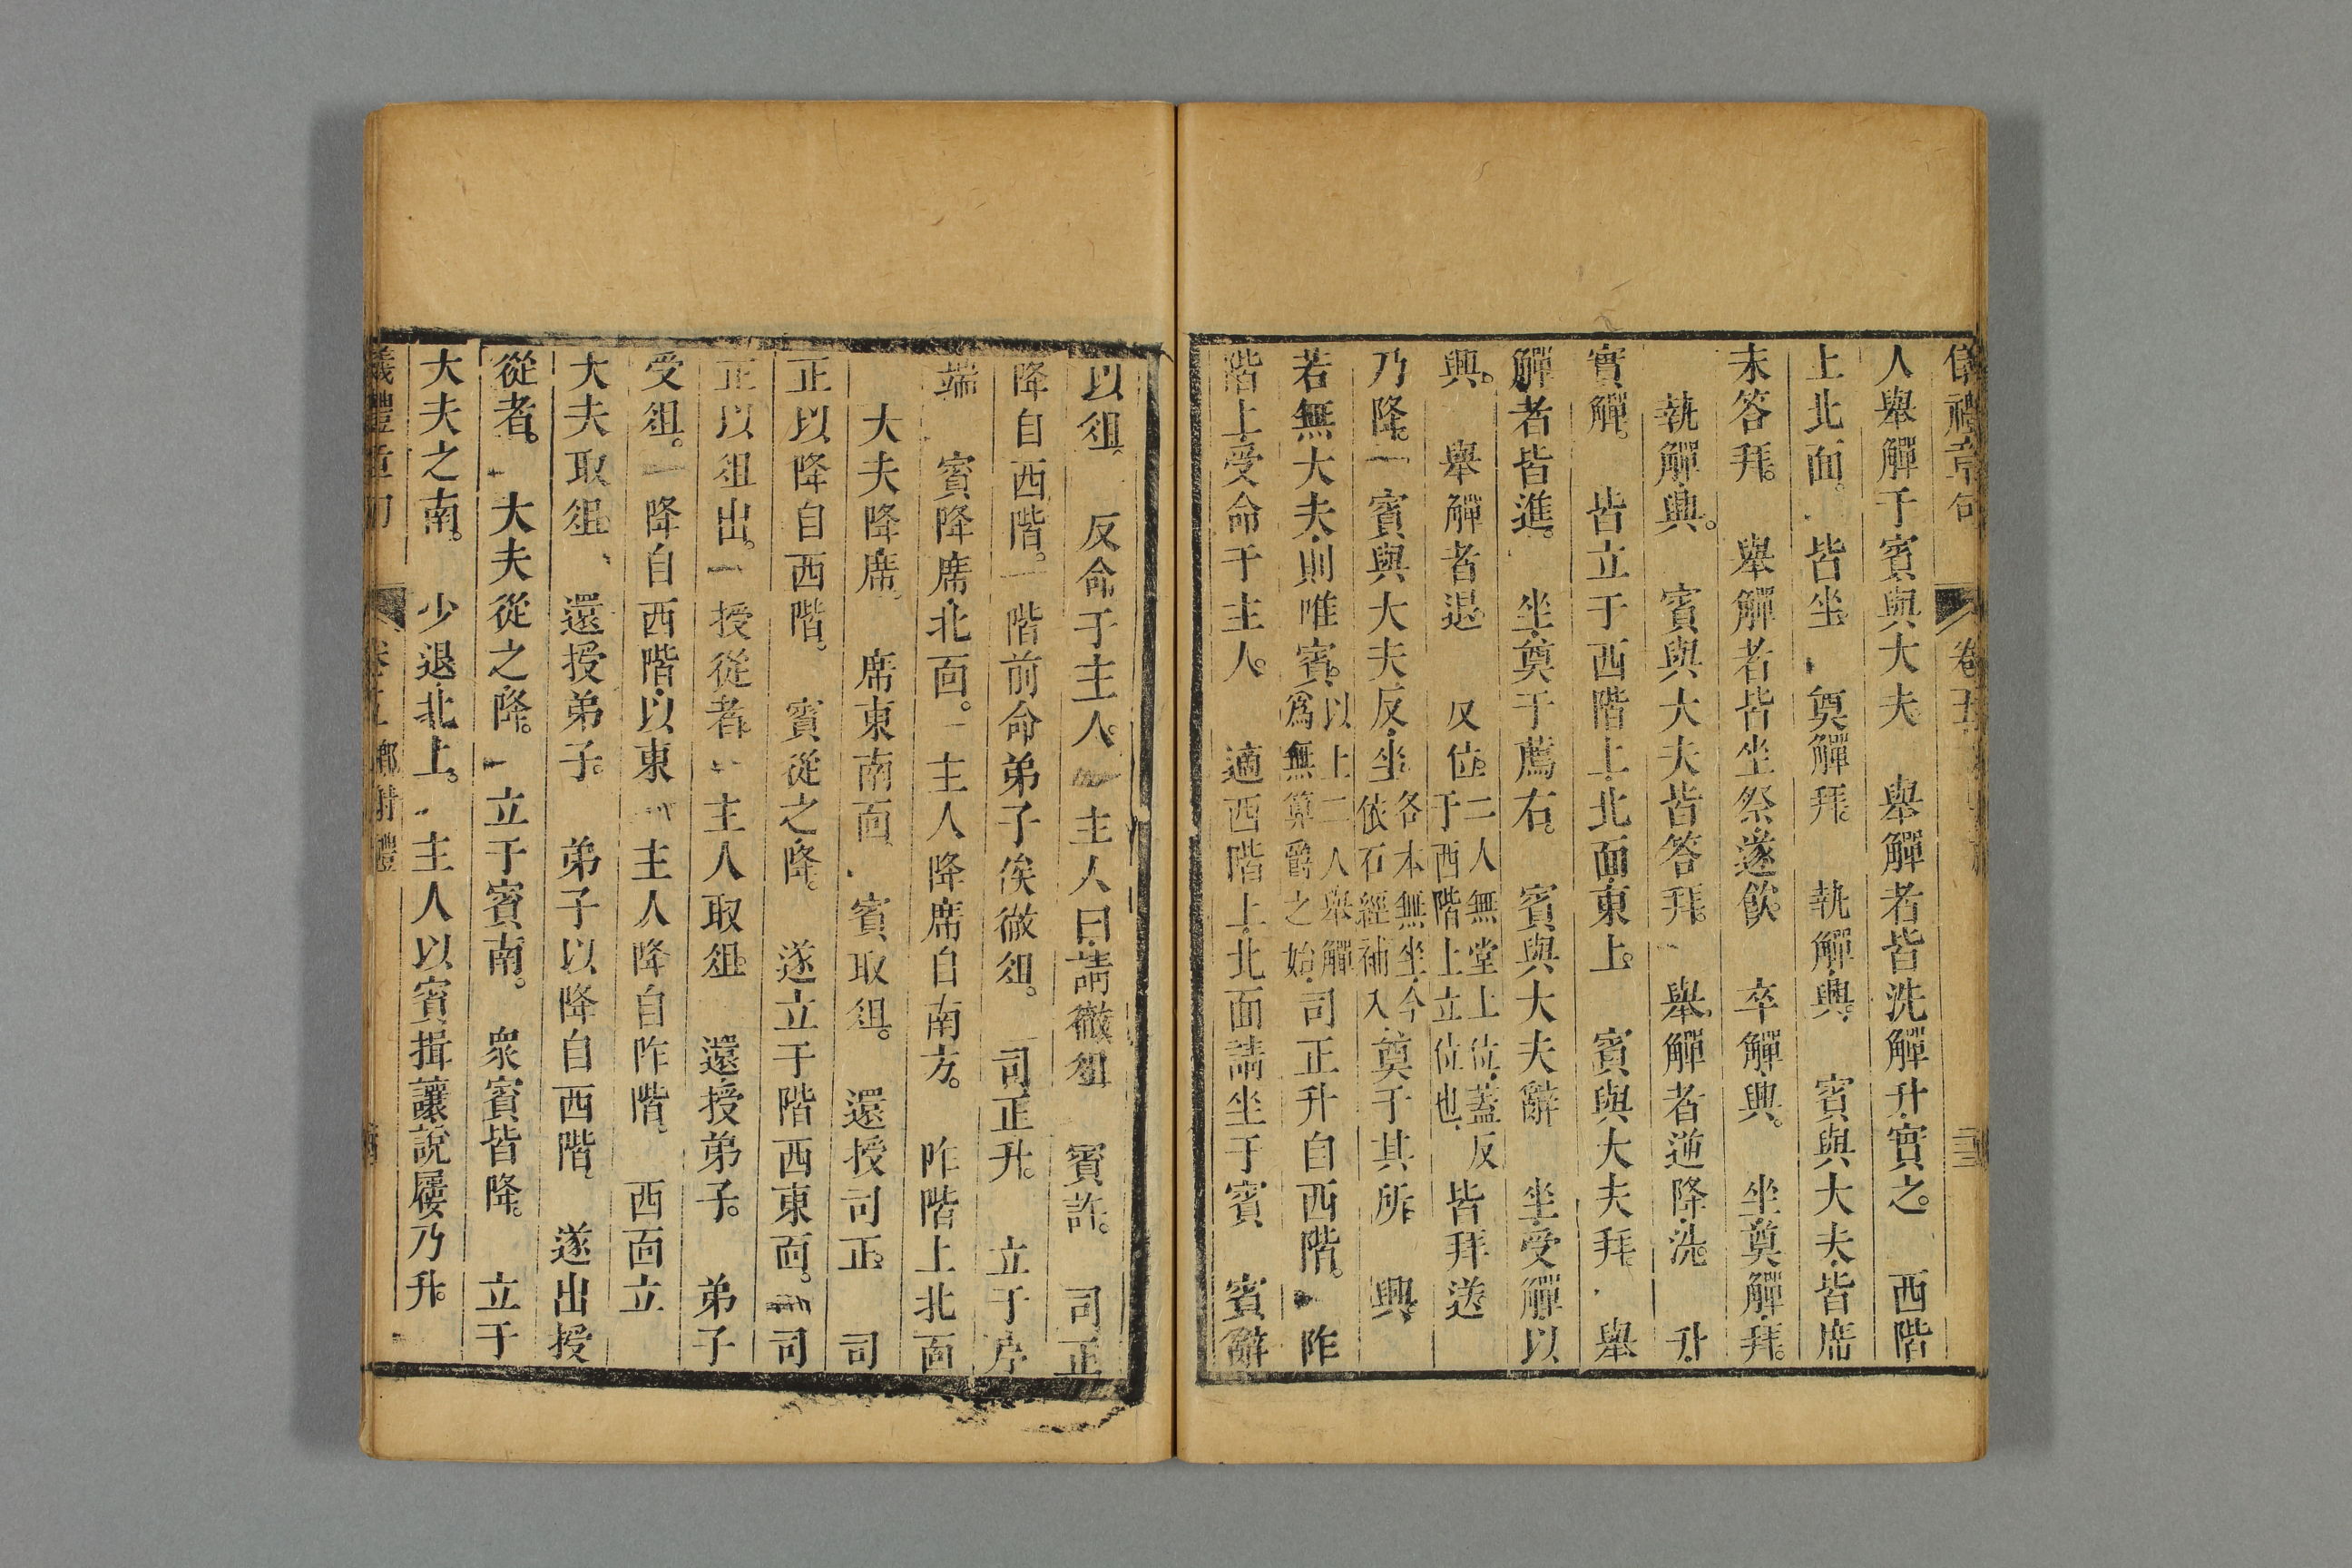 儀禮章句 卷五
人舉觶于賓與大夫 舉觶者皆洗觶升實之。 西階
上北面。 皆坐 奠觶拜。 執觶興。 賓與大夫皆席
末答拜。 舉觶者皆坐祭遂飲 卒觶興。 坐奠觶拜。
執觶興。 賓與大夫皆答拜。 舉觶者逆降洗 升
實觶。 皆立于西階上北面東上。 賓與大夫拜 舉
觶者皆進。 坐奠于薦右。 賓與大夫辭 坐受觶以
興。 舉觶者退 反位。二人無堂上位蓋反于西階上立位也 皆拜送
乃降。 賓與大夫反坐各本無坐今依石經補入 奠于其所 興
若無大夫則唯賓。以上二人舉觶爲無算爵之始 司正升自西階。 阼
階上受命于主人。 適西階上北面請坐于賓 賓辭
以俎 反命于主人。 主人曰請徹俎 賓許。 司正
降自西階。 階前命弟子俟徹俎。 司正升。 立于序
端 賓降席北面。 主人降席自南方。 阼階上北面
大夫降席 席東南面 賓取俎。 還授司正 司
正以降自西階。 賓從之降。 遂立于階西東面。 司
正以俎出。 授從者 主人取俎 還授弟子。 弟子
受俎。 降自西階以東 主人降自阼階 西面立
大夫取俎 還授弟子 弟子以降自西階 遂出授
從者。 大夫從之降。 立于賓南。 衆賓皆降。 立于
大夫之南。 少退北上。 主人以賓揖讓說屨乃升。
儀禮章句 卷五 鄉射禮